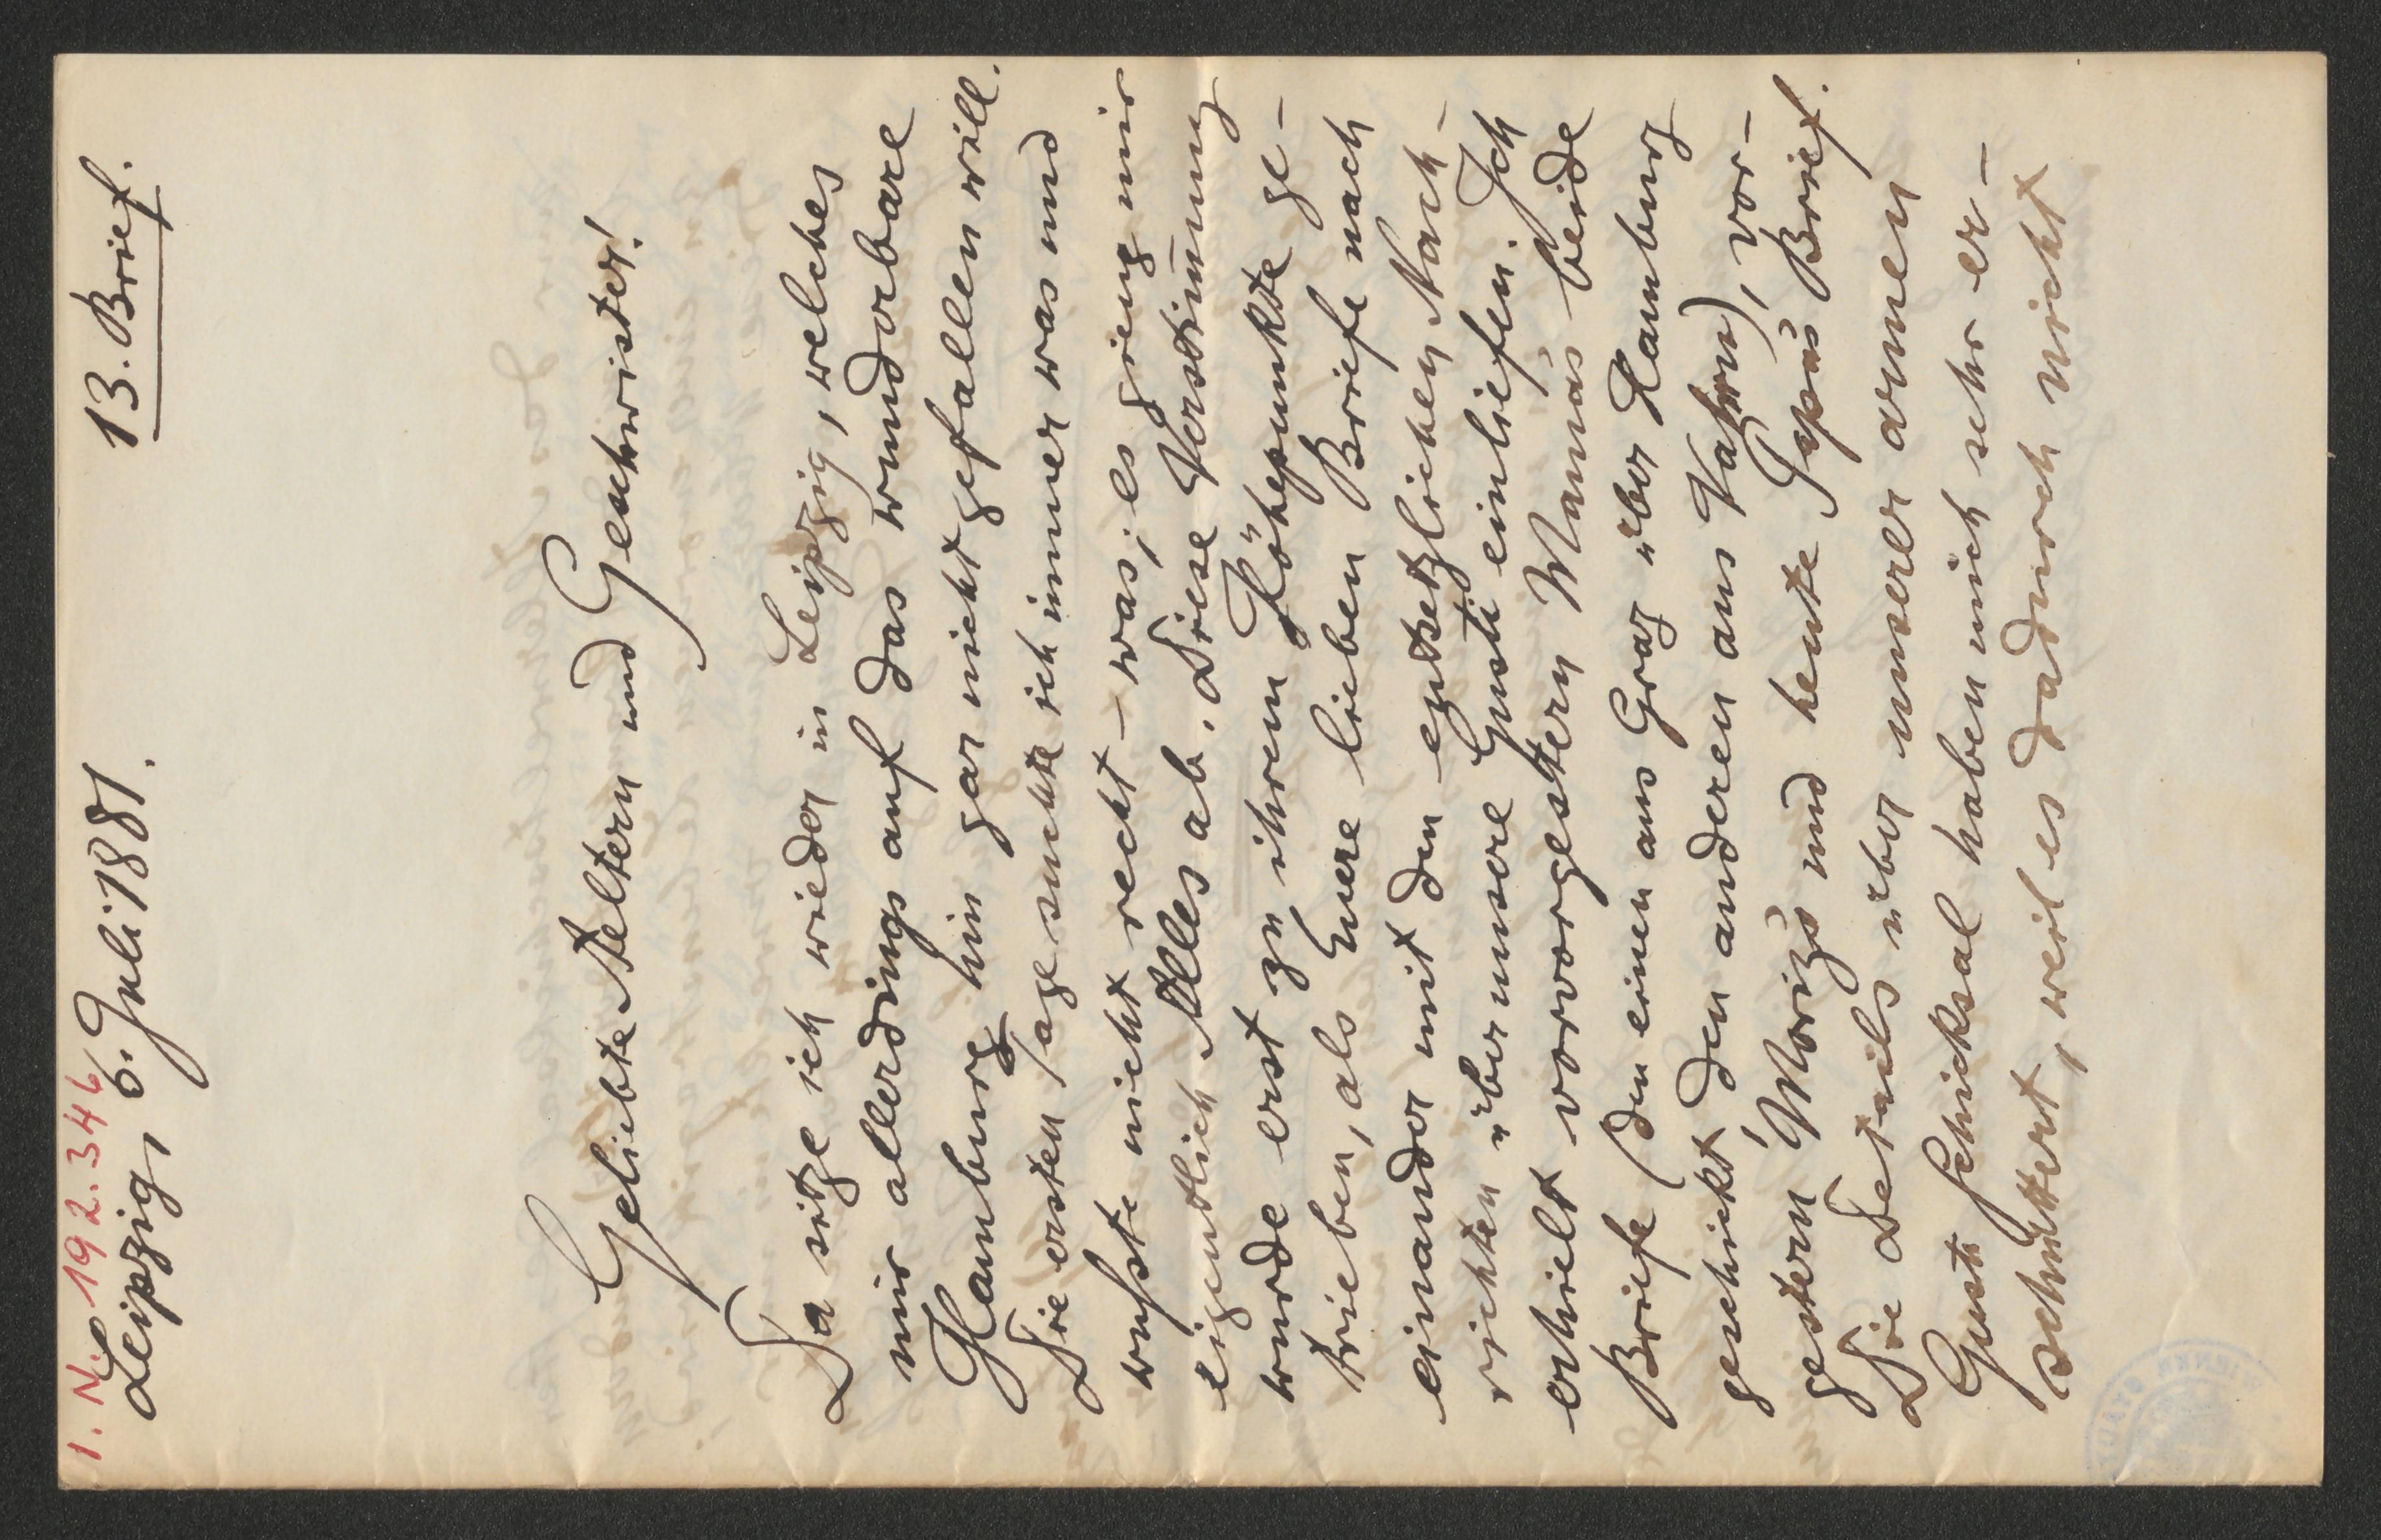 I. N. 192.346
Leipzig, 6. Juli 1881.
13. Brief.
Geliebte Aeltern und Geschwister!
Da sitze ich wieder in Leipzig, welches
mir allerdings auf das wundorbare
Hamburg hin gar nicht gefallen will.
Die ersten Tage suchte ich immer was und
wußte nicht recht – was; es gieng mir
eigentlich Alles ab. Diese Verstim̄ung
wurde erst zu ihrem Höhepunkte ge-
trieben, als Euere lieben Briefe nach
einander mit den entsetzlichen Nach-
richten über unsere Gusti einliefen. Ich
erhielt vorvorgestern Mama's beide
Briefe (den einen aus Graz über Hamburg
geschickt, den anderen aus Vahrn), vor-
gestern Moriz's und heute Papa's Brief.
Die Details über unserer armen
Gusti Schicksal haben mich sehr er-
schüttert, weil es dadurch nicht